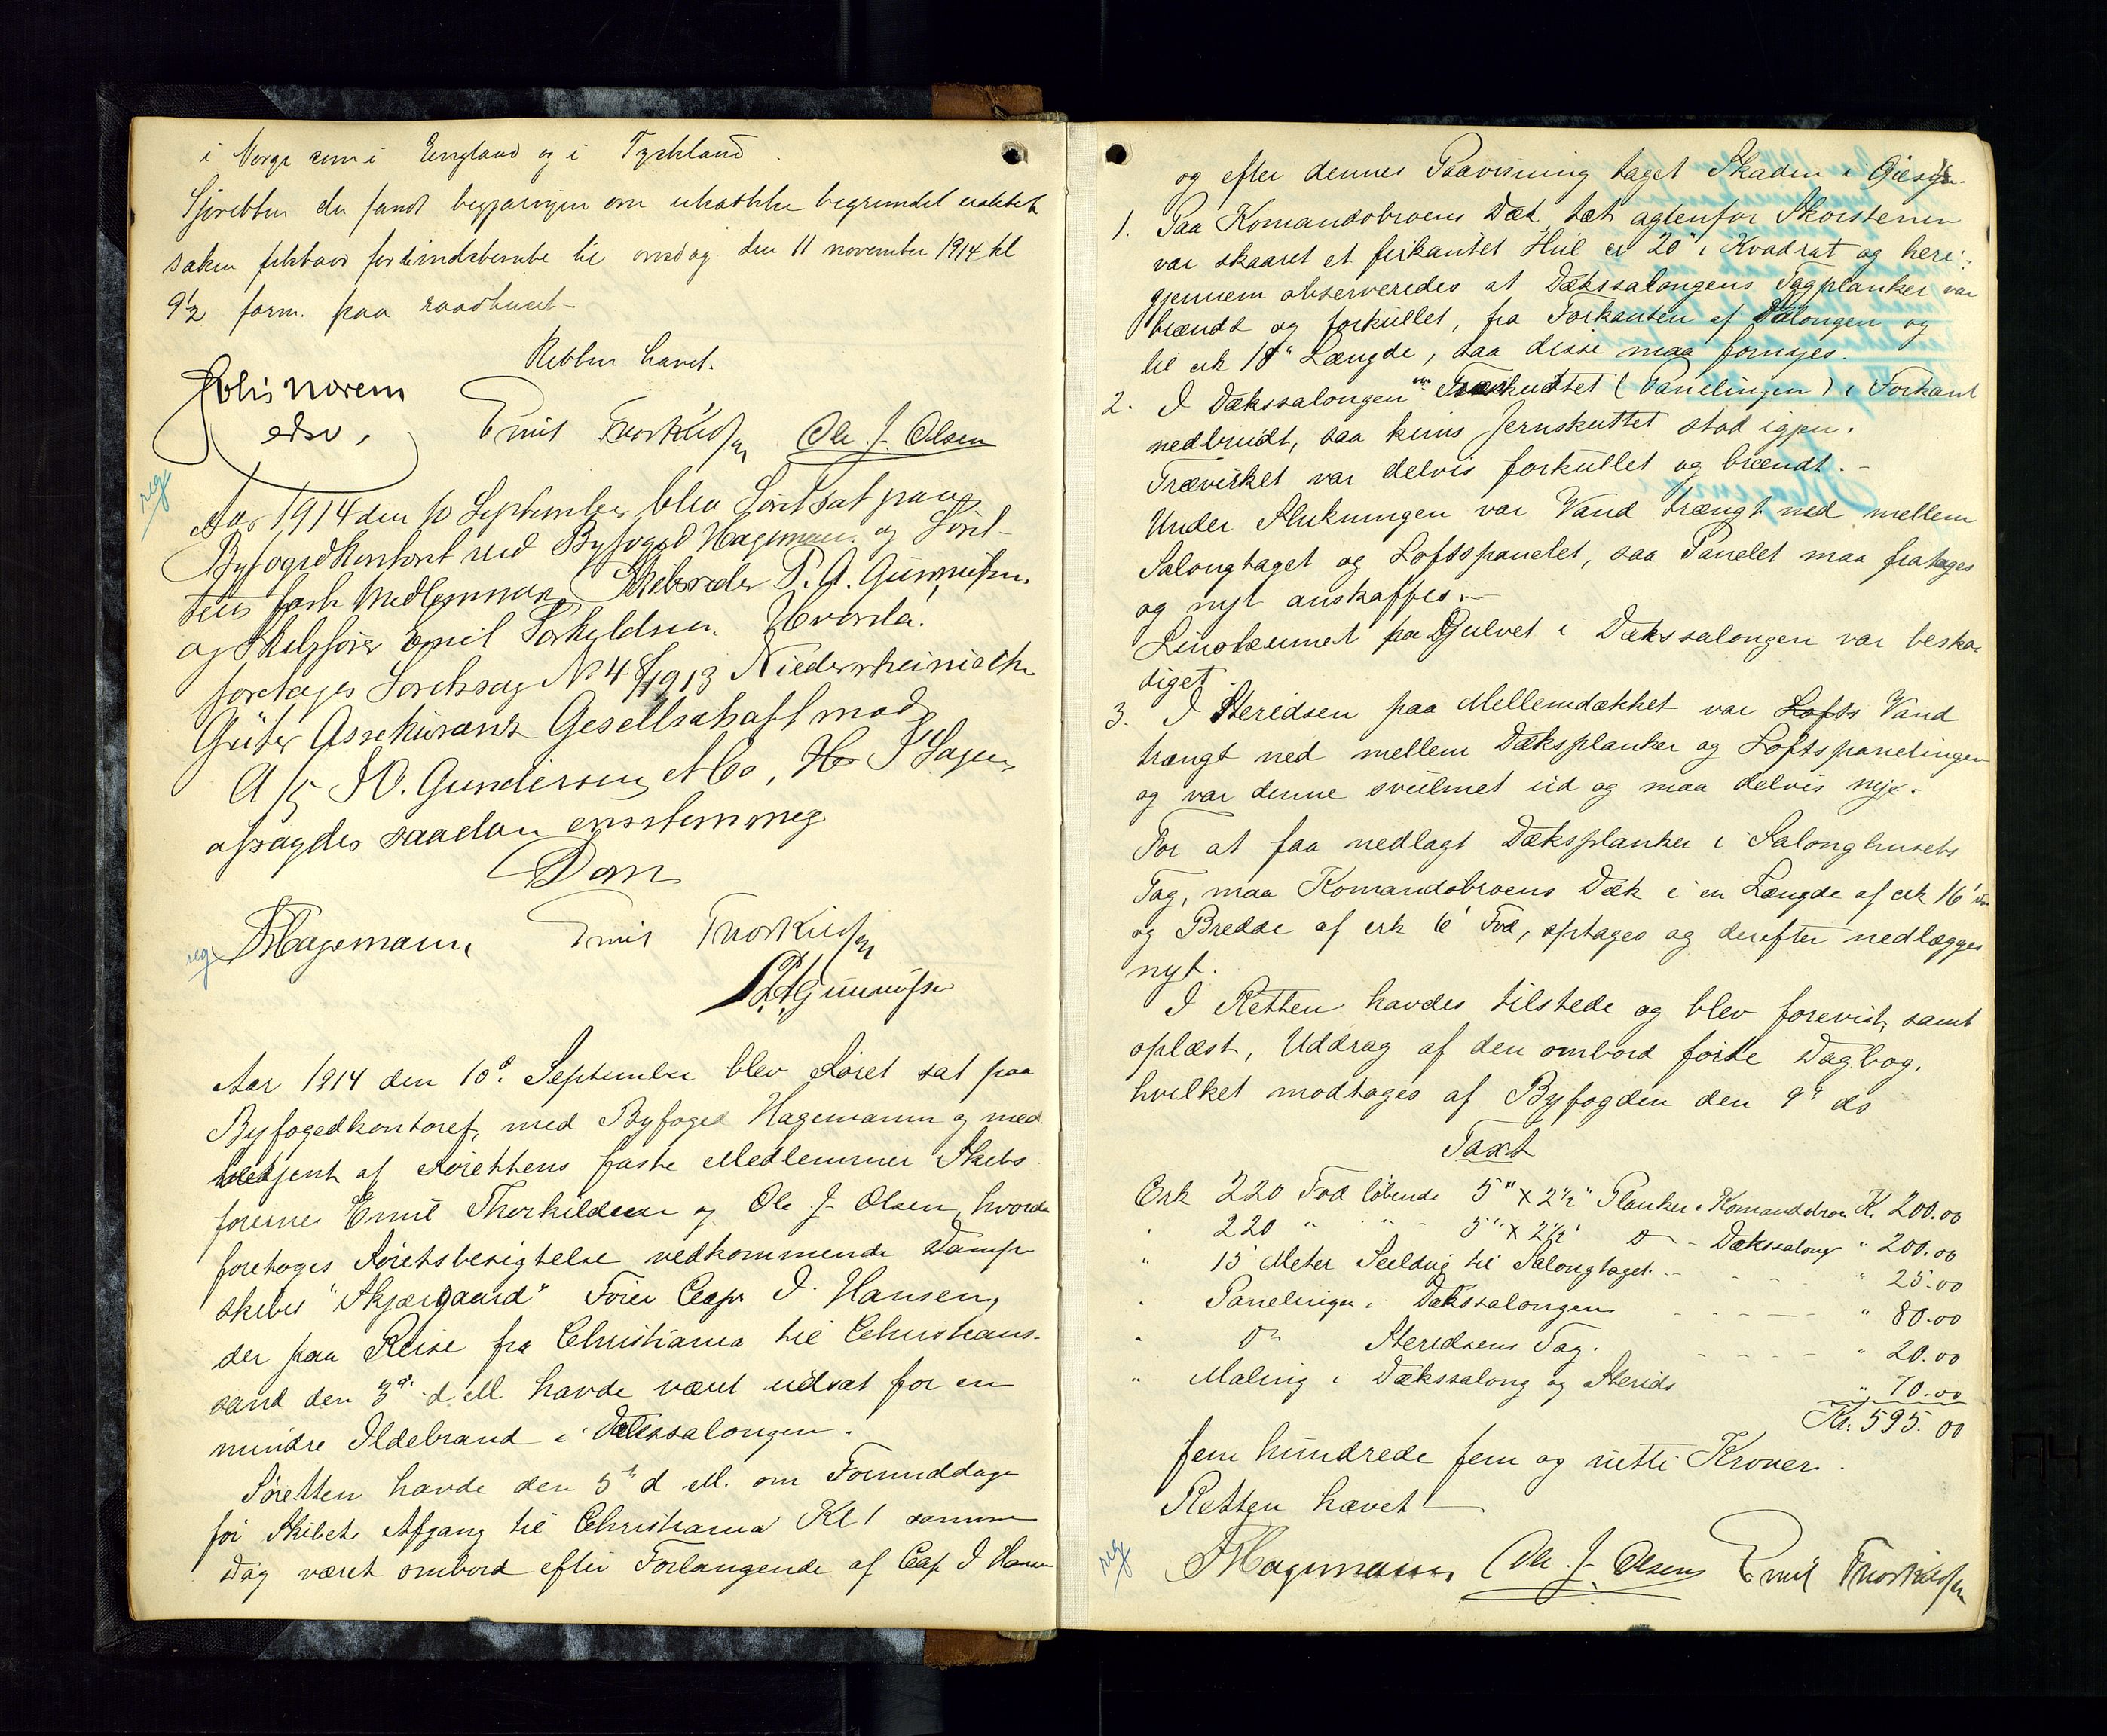 i Norge som i England og i Tyskland.
Sjøretten der fandt begjæringen om utsættelse begrundet utsatte
saken fristvis for bevisbernbe til onsdag den 11 november 1914 kl
9½ form. paa raadhuset –
Retten hævet.
Johs Norem
edsv,
Emil Thorkildsen Ole J. Olsen
reg
Aar 1914 den 10 September blev Søret sat paa
Byfogedkontoret ved Byfoged Hagemann og Søret-
tens faste Medlemmer Skibsreder P. A. Gunnufsen
og Skibsfører Emil Torkildsen. Hvorda
foretages Søretssag No 48/1913 Niederrheinische
Güter Assekuranz Gesellschaft mod
A/S H. Gundersen & Co,
afsagdes saadan enstemmig
Dom
reg
Hagemann, Emil Thorkildsen
P.A. Gunnufsen
Aar 1914 den 10de September blev Søret sat paa
Byfogedkontoret, med Byfoged Hagemann og med
betjent af Sørettens faste Medlemmer Skibs
førerne Emil Thorkildsen og Ole J. Olsen, hvorda
foretoges Søretsbesigtelse vedkommende Damp-
skibet "Skjærgaard" Fører Cap J. Hansen,
der paa Reise fra Christiania til Christians-
sand den 3de d M havde været udsat for en
mindre Ildebrand i Dækssalongen.
Søretten havde den 5te d M. om Formiddagen
før Skibets Afgang til Christiania Kl 1 samme
Dag været ombord efter Forlangende af Cap J Hansen
og efter dennes Paavisning taget Skaden i Øiesyn.
1. Paa Komandobroens Dæk, tæt agtenfor Skorstenen
var skaaret et firkantet Hul ca 20" i Kvadrat og heri-
gjennem observeredes at Dækssalongens Tagplanker var
brændt og forkullet, fra Forkanten af Salongen og
til crk 18" Længde, saa disse maa fornyes.
2. I Dækssalongen var Træskuttet (Panelingen) i Forkant
nedbrudt, saa kuns Jernskuttet stod igjen.
Trævirket var delvis forkullet og brændt. –
Under Slukningen var Vand trængt ned mellem
Salongtaget og Loftspanelet, saa Panelet maa fratages
og nyt anskaffes. –
Linoleumet paa Gulvet i Dækssalongen var beska-
diget.
3. I Steridsen paa Mellemdækket var Lofts Vand
trængt ned mellem Dæksplanker og Loftspanelingen
og var denne svulmet ud og maa delvis nye.
For at faa nedlagt Dæksplanker i Salonghusets
Tag, maa Komandobroens Dæk i en Længde af crk 16' Fod
og Bredde af crk 6' Fod, optages og derefter nedlægges
nyt.
I Retten havdes tilstede og blev forevist, samt
oplæst, Uddrag af den ombord førte Dagbog,
hvilket modtoges af Byfogden den 9de ds
Taxt
Crk 220 Fod løbende 5" x 2½" Planker i Komandobroen Kr. 200.00
" 220 " " - 5" x 2½" Do - Dækssalong " 200.00
" 15 Meter Seildug til Salongtaget. - - - - " 25.00
" Panelingen i Dækssalongen - - - - - " 80.00
" Do Steridsens Tag. - - - - " 20.00
" Maling i Dækssalong og Sterids " 70.00
Kr. 595.00
fem hundrede fem og nitti Kroner.
Retten hævet
reg
Hagemann Ole J. Olsen Emil Thorkildsen